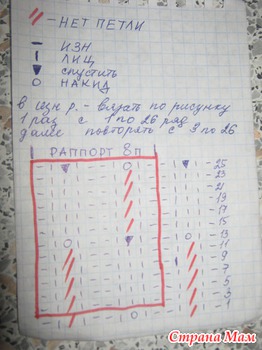 - НЕТ ПЕТЛИ
- ИЗН
ı ЛИЦ
▼ спустить
о НАКИД
в изн р. - вязать по рисунку
1 раз с 1 по 26 ряд
далее повторять с 3 по 26
РАППОРТ 8п
25
23
21
19
17
15
13
11
9
7
5
3
1
Страна Мам